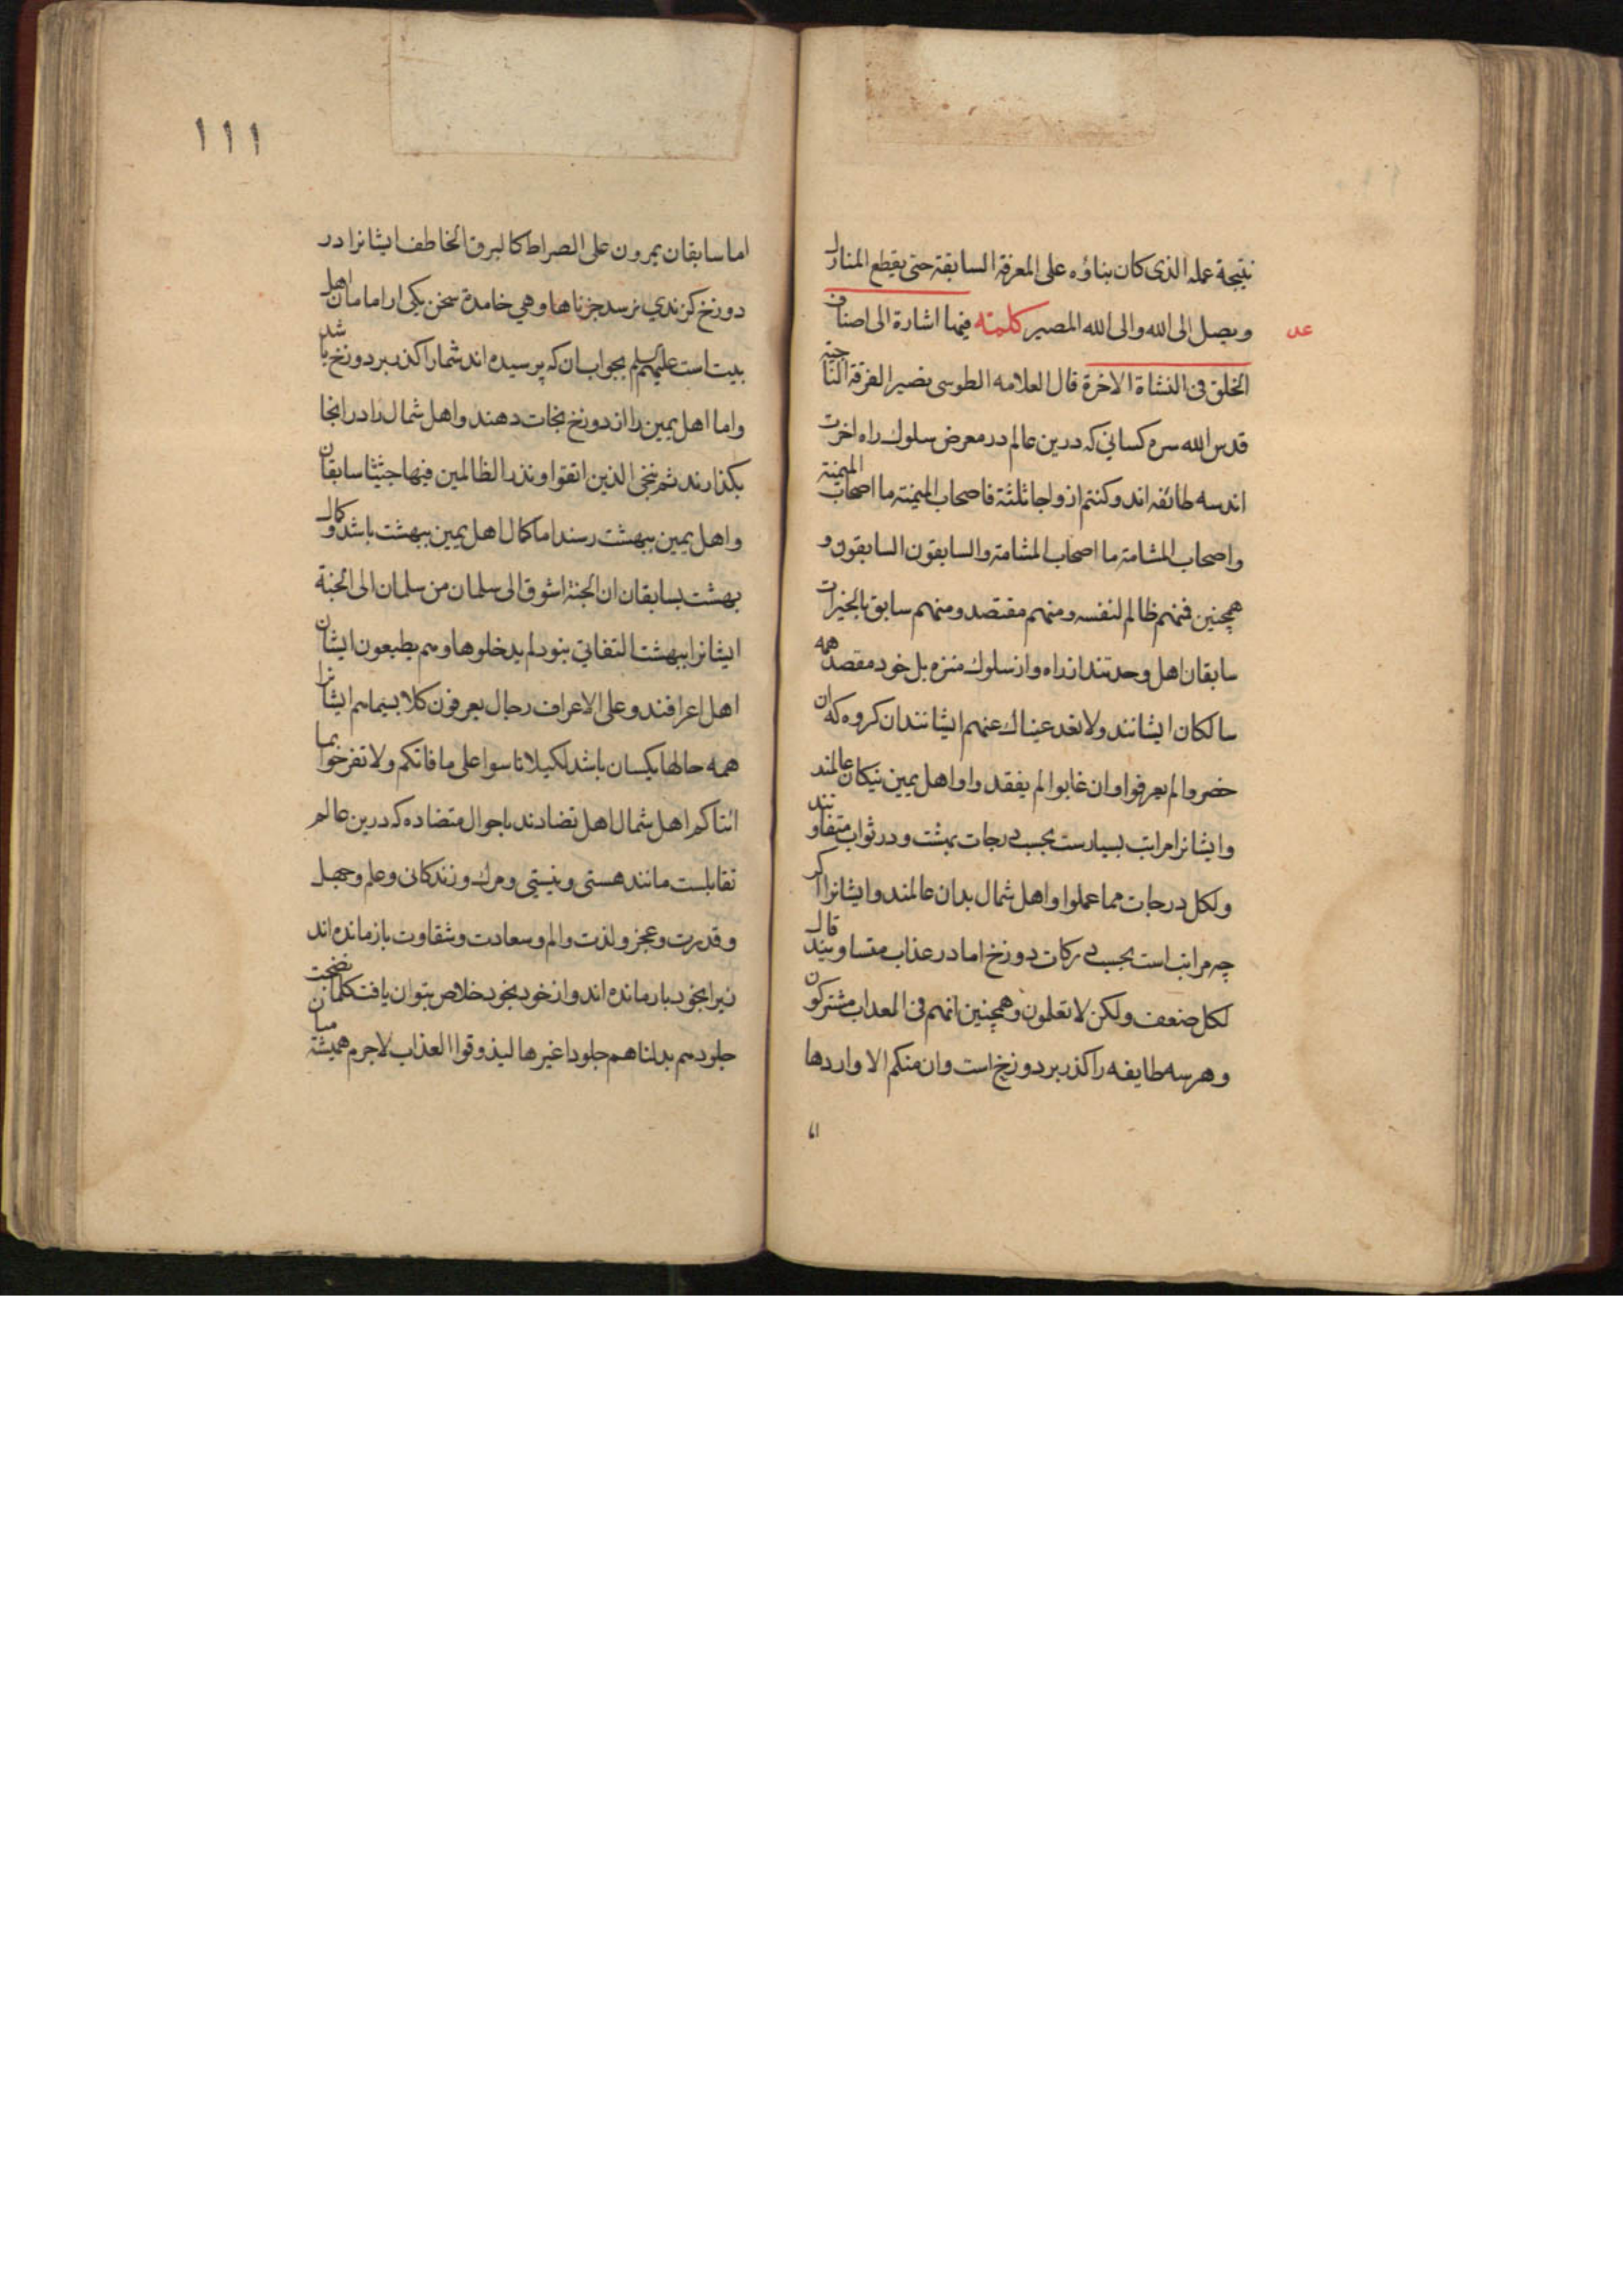 نتیجة عمله الذی کان بناؤه علی المعرفة السابقة حتی یقطع المنازل
ویصل الی الله والی الله المصیر کلمته فیها اشارة الی اصناف
عد
الخلق فی النشاة الاخرة قال العلامه الطوسی نصیر الفرقة الناجیة
قدس الله سره کسانی که درین عالم در معرض سلوك راه اخرت
اند سه طائفه اند وکنتم ازواجا ثلثة فاصحاب المیمنة ما اصحاب المیمنة
واصحاب المشامة ما اصحاب المشامة والسابقون السابقون و
همچنین فمنهم ظالم لنفسه ومنهم مقتصد ومنهم سابق بالخیرات
سابقان اهل وحدتند از راه واز سلوك منزه بل خود مقصد همه
سالکان ایشانند ولا تعد عیناك عنهم ایشانند ان کروه که ان
حضروا لم یعرفوا وان غابوا لم یفقدوا واهل یمین نیکان عالمند
وایشانرا مراتب بسیارست بحسب درجات بهشت ودر ثواب متفاوتند
ولکل درجات مما عملوا واهل شمال بدان عالمند وایشانرا اکر
چه مراتب است بحسب درکات دوزخ اما در عذاب متساویند قال
لکل ضعف ولکن لا تعلمون وهمچنین انهم فی العذاب مشترکون
وهر سه طایفه را کذر بر دوزخ است وان منکم الا واردها
اما
١١١
اما سابقان یمرون علی الصراط کالبرق الخاطف ایشانرا در
دوزخ کزندي نرسد جزناها وهي خامدة سخن یکی از امامان اهل
بیت است علیهم السلم بجواب ان که پرسیده اند شما را کذر بر دوزخ باشد
واما اهل یمین را از دوزخ نجات دهند واهل شمال را در انجا
بکذارند ثم ننجی الذین اتقوا ونذر الظالمین فیها جثیا سابقان
واهل یمین ببهشت رسند اما کمال اهل یمین ببهشت باشد وکمال
بهشت بسابقان ان الجنة اشوق الی سلمان من سلمان الی الجنة
ایشانرا ببهشت التفاتی نبود لم یدخلوها وهم یطمعون ایشان
اهل اعرافند وعلی الاعراف رجال یعرفون کلا بسیماهم ایشانرا
همه حالها یکسان باشد لکیلا تاسوا علی ما فاتکم ولا تفرحوا بما
اتاکم اهل شمال اهل تضادند باحوال متضاده که درین عالم
تقابلست مانند هستی ونیستی ومرك وزندکانی وعلم وجهل
وقدرت وعجز ولذت والم وسعادت وشقاوت بازمانده اند
زیرا بخود بازمانده اند واز خود بخود خلاص نتوان یافت کلما نضجت
جلودهم بدلناهم جلودا غیرها لیذوقوا العذاب لاجرم همیشه میان